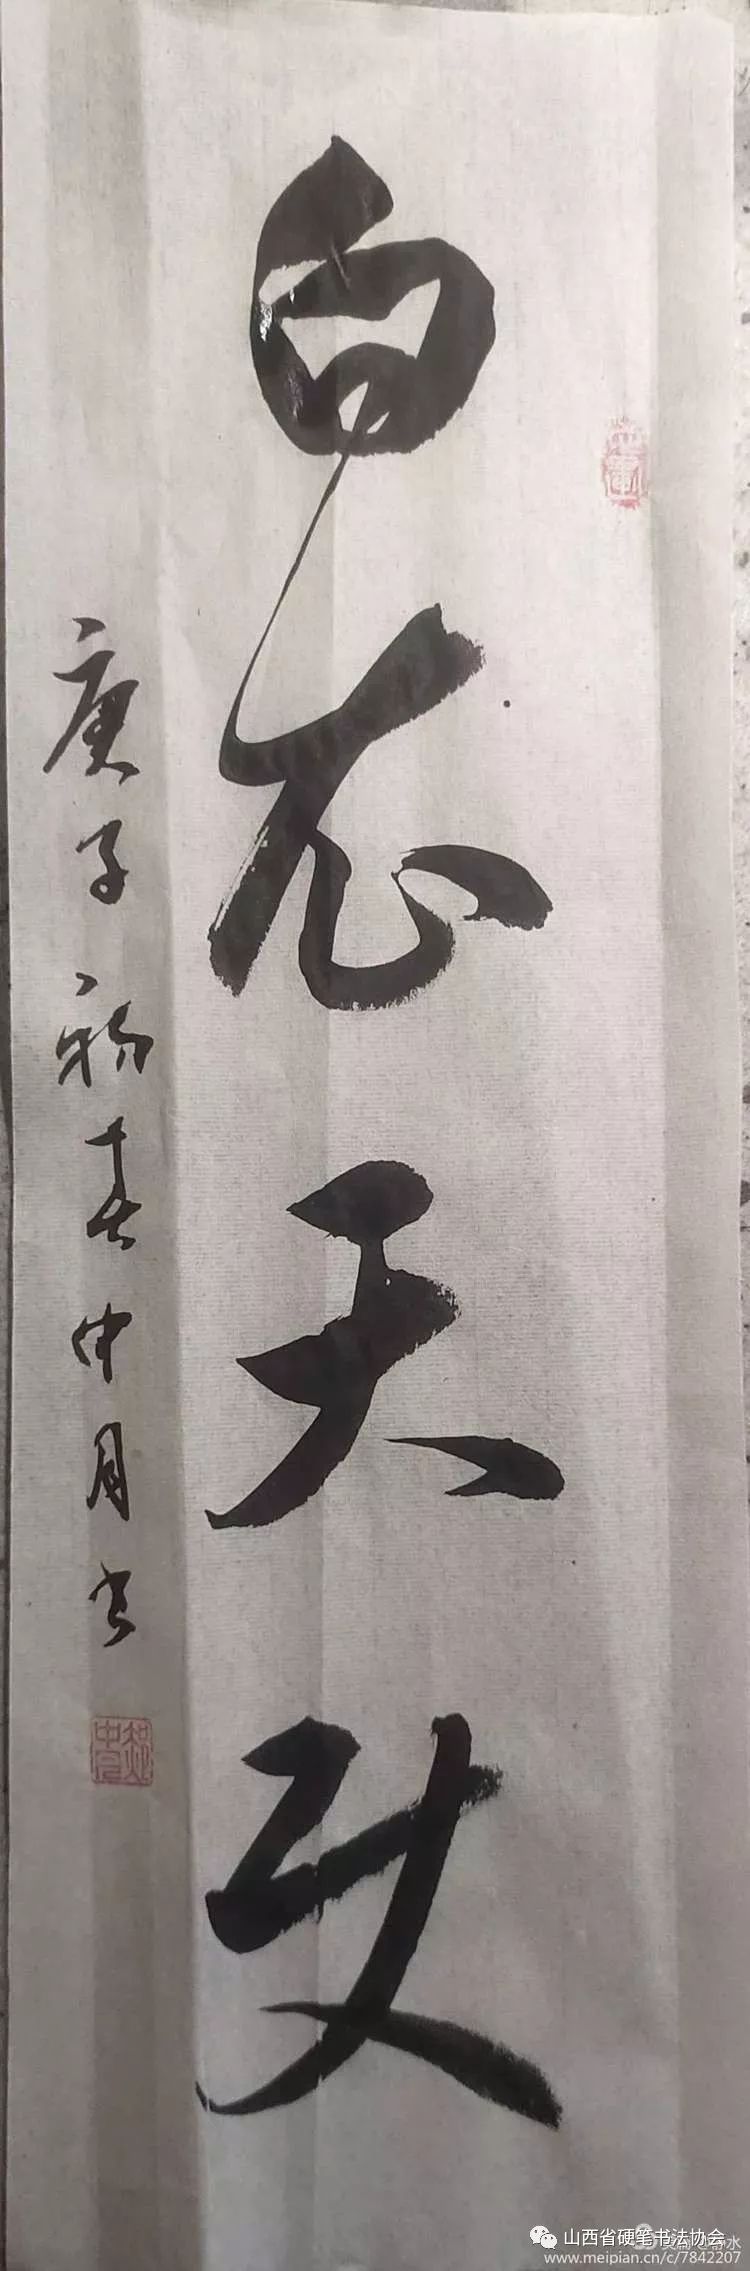 白衣天使
庚子初春中月书
山西省硬笔书法协会
www.meipian.cn/c/7842207